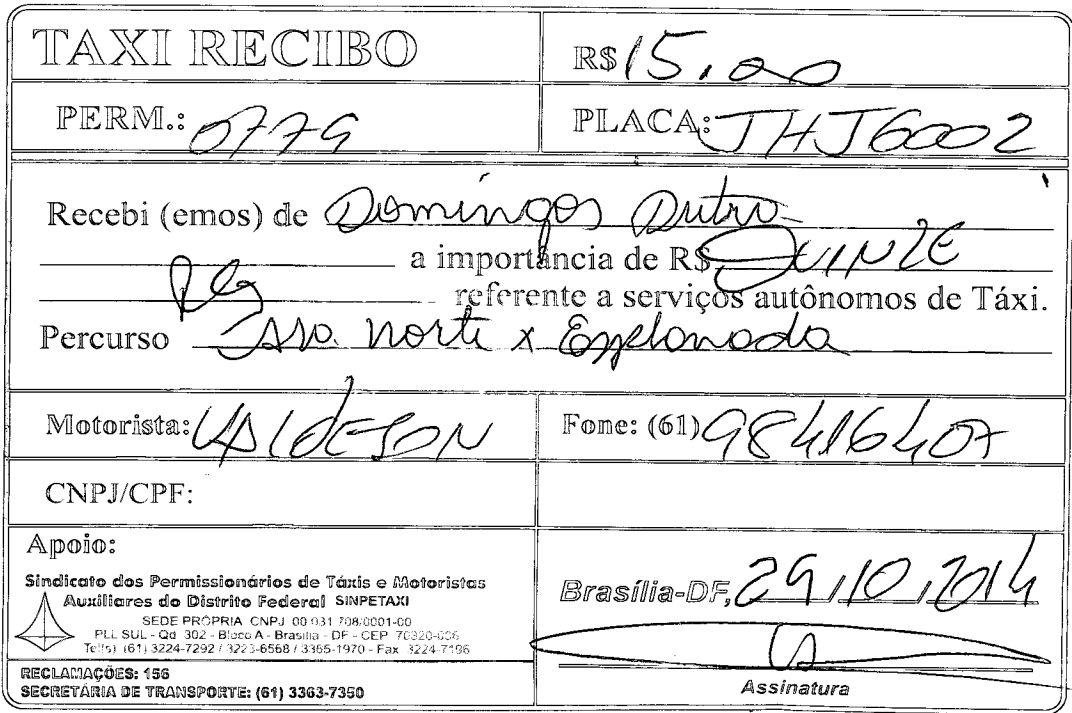 TAXI RECIBO
R$ 15,00
PERM.: 0779
PLACA: JHJ6002
Recebi (emos) de Domingos Dutra
a importância de R$ QUINZE
referente a serviços autônomos de Táxi.
Percurso Asa norte x Esplanada
Motorista: VALDESON
Fone: (61) 98416407
CNPJ/CPF:
Apoio:
Sindicato dos Permissionários de Táxis e Motoristas
Auxiliares do Distrito Federal SINPETAXI
SEDE PRÓPRIA CNPJ 00 031 708/0001-00
PLL SUL - Qd 302 - Bloco A - Brasília - DF - CEP
Tel(s) (61) 3224-7292 / 3223-6568 / 3365-1970 - Fax 3224-7196
RECLAMAÇÕES: 156
SECRETÁRIA DE TRANSPORTE: (61) 3363-7350
Brasília-DF, 29/10/2014
Assinatura